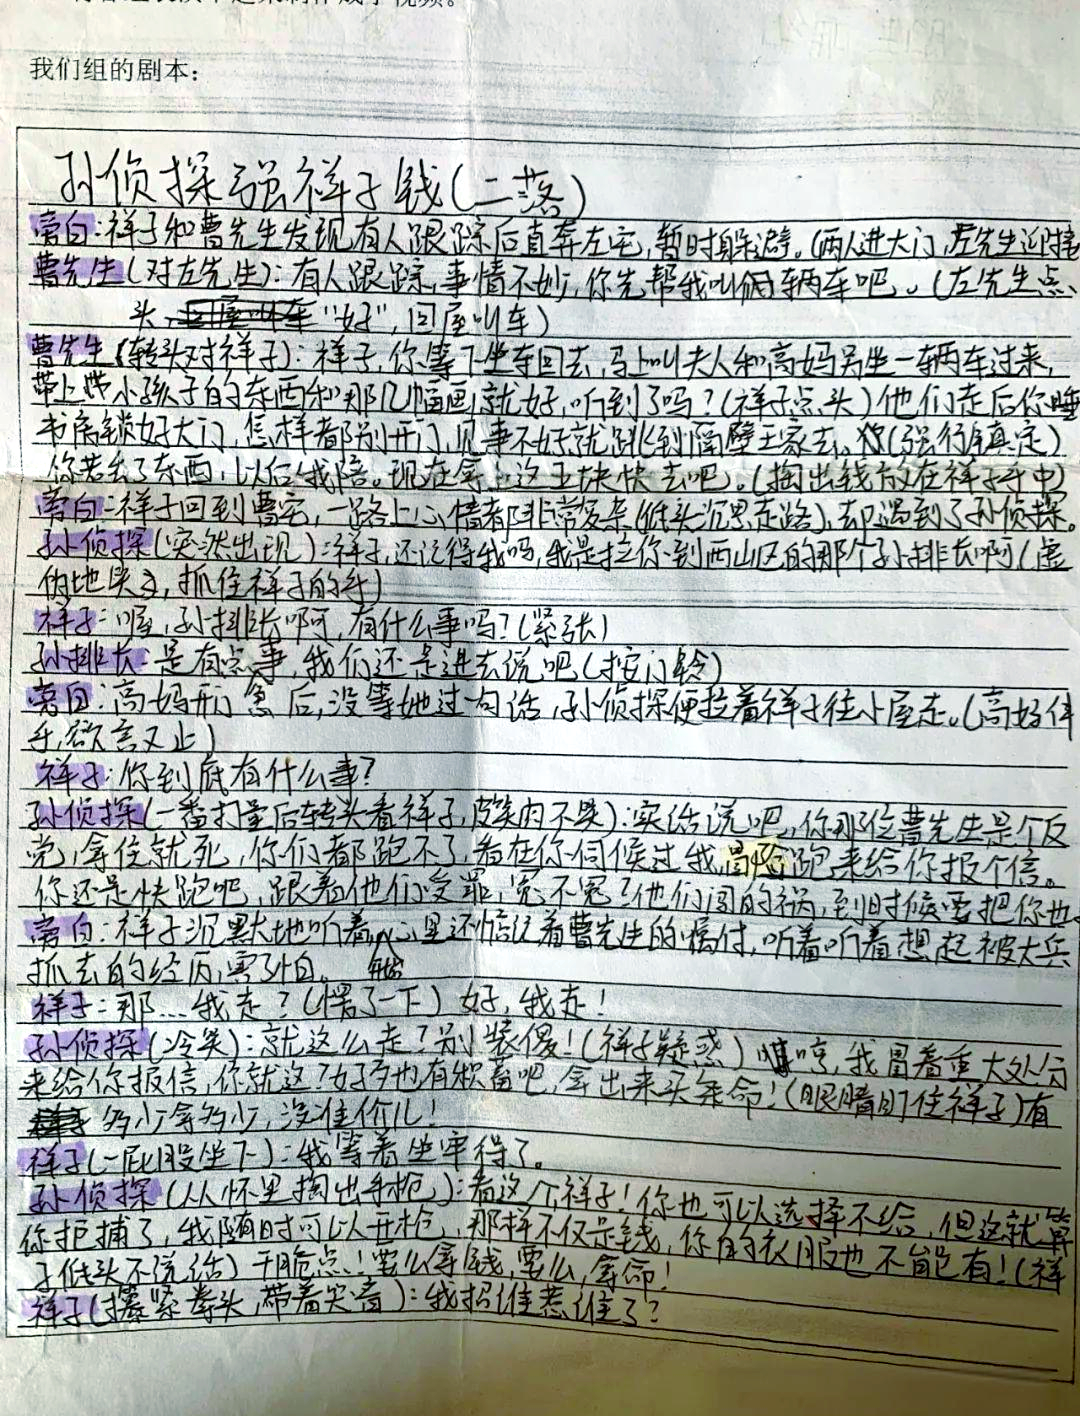 我们组的剧本：
孙侦探强祥子钱(二落)
旁白：祥子和曹先生发现有人跟踪后直奔左宅，暂时躲避。(两人进大门，左先生迎接
曹先生(对左先生)：有人跟踪，事情不妙，你先帮我叫俩辆车吧。(左先生点
头，"好"，回屋叫车)
曹先生(转头对祥子)：祥子，你等下坐车回去，马上叫夫人和高妈另坐一辆车过来，
带上带小孩子的东西和那几幅画就好，听到了吗？(祥子点头)他们走后你睡
书房锁好大门，怎样都别开门，见事不好就跳到隔壁王家去。(强行镇定)
你若丢了东西，以后我陪。现在拿上这五块快去吧。(掏出钱放在祥子手中)
旁白：祥子回到曹宅，一路上心情都非常复杂(低头沉思走路)，却遇到了孙侦探。
孙侦探(突然出现)：祥子，还记得我吗，我是拉你到西山区的那个孙排长啊(虚
伪地笑，抓住祥子的手)
祥子：喔，孙排长啊，有什么事吗？(紧张)
孙排长：是有点事，我们还是进去说吧(按门铃)
旁白：高妈开门后，没等她过一句话，孙侦探便拉着祥子往小屋走。(高妈伸
手，欲言又止)
祥子：你到底有什么事？
孙侦探(一番打量后转头看祥子，皮笑肉不笑)：实话说吧，你那位曹先生是个反
党，拿住就死，你们都跑不了，看在你伺候过我，冒险跑来给你报个信。
你还是快跑吧，跟着他们受罪，冤不冤？他们闯的祸，到时候要把你也
旁白：祥子沉默地听着，心里还惦记着曹先生的嘱付，听着听着想起被大兵
抓去的经历，害了怕。
祥子：那...我走？(愣了一下)好，我走！
孙侦探(冷笑)：就这么走？别装傻！(祥子疑惑)哼，我冒着重大处分
来给你报信，你就这？好歹也有积蓄吧，拿出来买条命！(眼睛盯住祥子)有
多少拿多少，没准价儿！
祥子(一屁股坐下)：我等着坐牢得了。
孙侦探(从怀里掏出手枪)：看这个，祥子！你也可以选择不给，但这就算
你拒捕了，我随时可以开枪，那样不仅是钱，你的衣服也不能有！(祥
子低头不说话)干脆点！要么拿钱，要么，拿命！
祥子(攥紧拳头，带着哭音)：我招谁惹谁了？